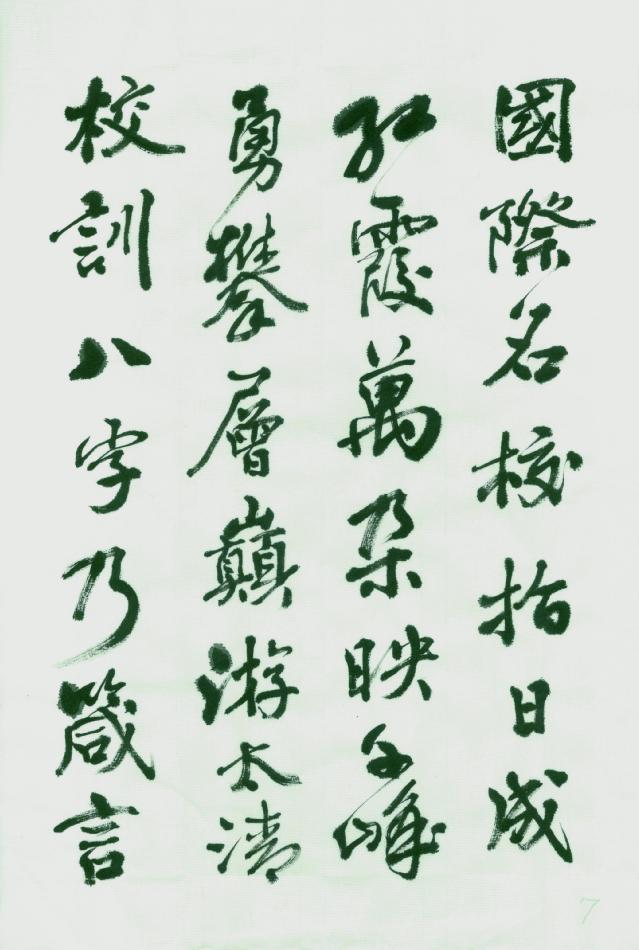 國際名校指日成
紅霞萬朵映千峰
勇攀層巔游太清
校訓八字乃箴言
7